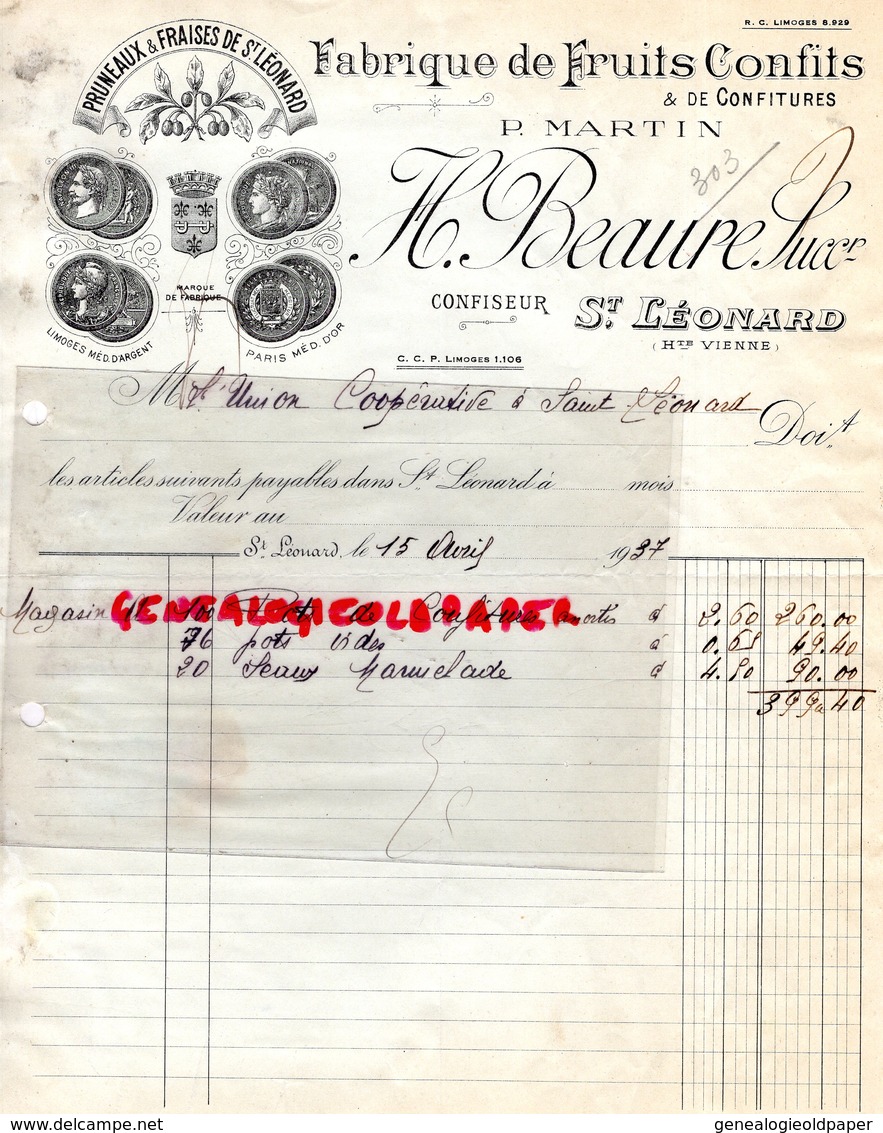 R. C. LIMOGES 8.929
PRUNEAUX & FRAISES DE ST LÉONARD
Fabrique de Fruits Confits
& DE CONFITURES
P. MARTIN
303
H. Beaure Succr
MARQUE
DE FABRIQUE
CONFISEUR
ST LÉONARD
(HTE VIENNE)
LIMOGES MÉD. D'ARGENT
PARIS MÉD. D'OR
C. C. P. LIMOGES 1.106
M L'Union Coopérative à Saint Léonard
Doit
les articles suivants payables dans St Léonard à mois
Valeur au
St Léonard, le 15 Avril 1937
Magasin 100 Pots de Confitures à 2.60 260.00
76 pots vides à 0.65 49.40
20 Seaux Marmelade à 4.50 90.00
399.40
GENEALOGIEOLDPAPER
delcampe.net
genealogieoldpaper